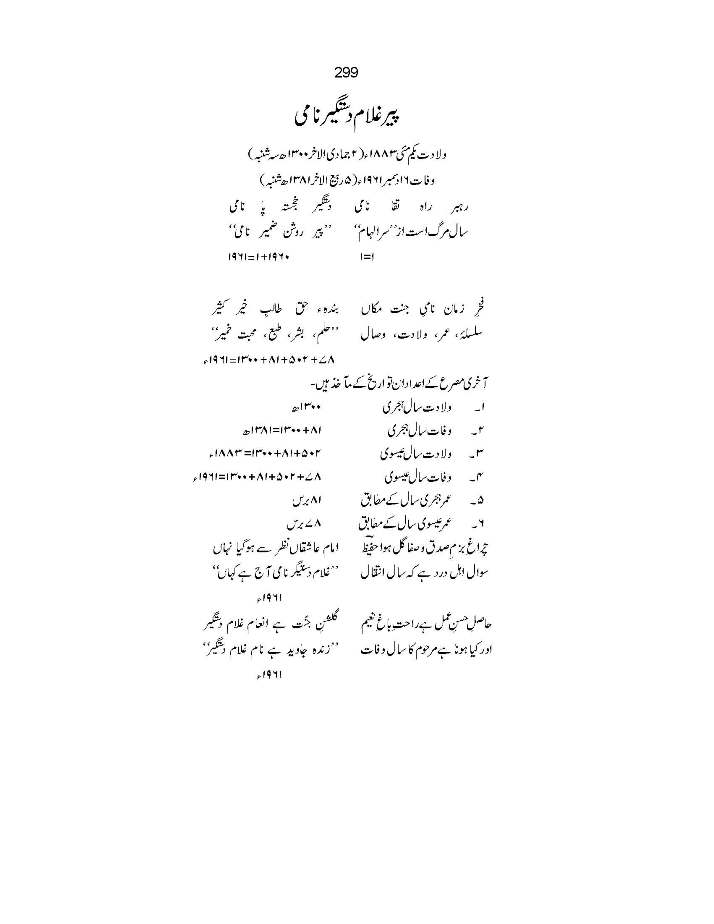 299
پیر غلام دستگیر نامی
ولادت یکم مئی ۱۸۸۳ء (۲ جمادی الاخر ۱۳۰۰ھ سہ شنبہ)
وفات ۱۶ دسمبر ۱۹۶۱ء (۵ ربیع الاخر ۱۳۸۱ھ شنبہ)
رہبر راہ تقا نامی دستگیر خجستہ پا نامی
سال مرگ است از ’’سر الہام‘‘ ’’پیر روشن ضمیر نامی‘‘
ا=۱ ۱۹۶۰+۱=۱۹۶۱
فخرِ زمان نامیِ جنت مکاں بندہء حق طالبِ خیر کثیر
سلسلۂ، عمر، ولادت، وصال ’’حلم، بشر، طبع، محبت خمیر‘‘
۷۸+۵۰۲+۸۱+۱۳۰۰=۱۹۶۱ء
آخری مصرع کے اعداد ان تواریخ کے مآخذ ہیں۔
۱۔ ولادت سال ہجری ۱۳۰۰ھ
۲۔ وفات سال ہجری ۸۱+۱۳۰۰=۱۳۸۱ھ
۳۔ ولادت سال عیسوی ۵۰۲+۸۱+۱۳۰۰=۱۸۸۳ء
۴۔ وفات سال عیسوی ۷۸+۵۰۲+۸۱+۱۳۰۰=۱۹۶۱ء
۵۔ عمر ہجری سال کے مطابق ۸۱ برس
۶۔ عمر عیسوی سال کے مطابق ۷۸ برس
چراغ بزم صدق و صفا گل ہوا حفیظؔ امام عاشقاں نظر سے ہوگیا نہاں
سوال اہل درد ہے کہ سال انتقال ’’غلام دستگیر نامی آج ہے کہاں‘‘
۱۹۶۱ء
حاصل حسنِ عمل ہے راحتِ باغ نعیم گلشنِ جنّت ہے انعام غلام دستگیر
اور کیا ہونا ہے مرحوم کا سال وفات ’’زندہ جاوید ہے نام غلام دستگیر‘‘
۱۹۶۱ء